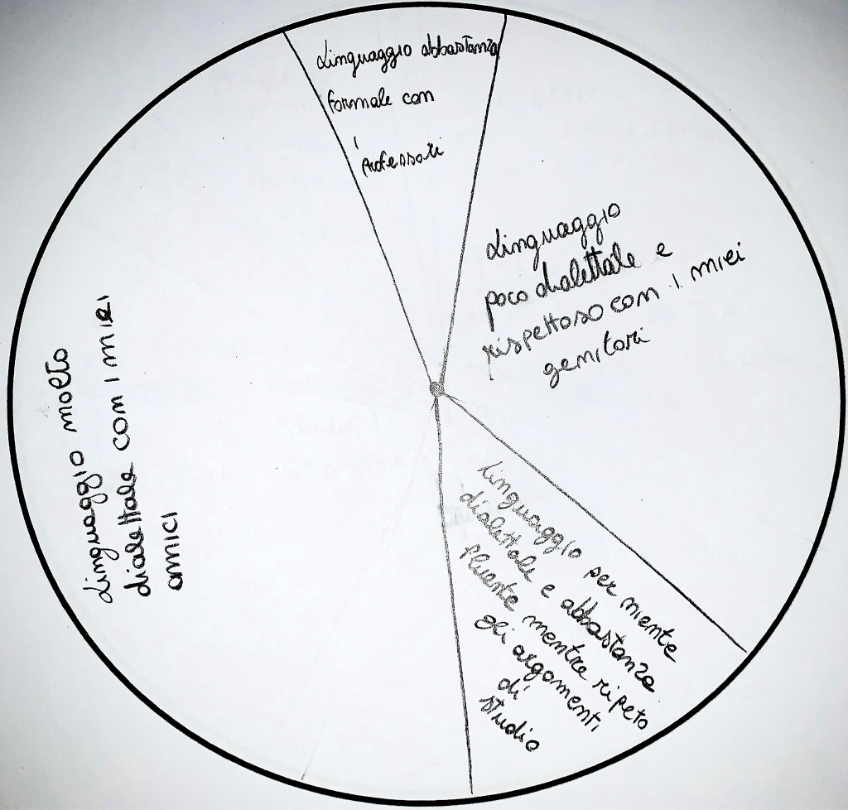 Linguaggio abbastanza
formale con
i
professori
Linguaggio
poco dialettale e
rispettoso con i miei
genitori
Linguaggio per niente
dialettale e abbastanza
fluente mentre ripeto
gli argomenti
di
studio
Linguaggio molto
dialettale con i miei
amici